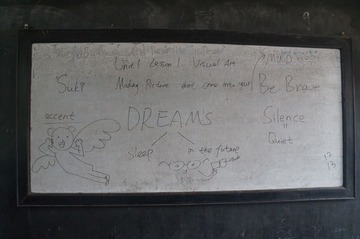 Unit 1 Lesson 1 Visual Art
Suki
Making Picture
come into your
Be Brave
accent
DREAMS
Silence
=
Quiet
sleep
in the future